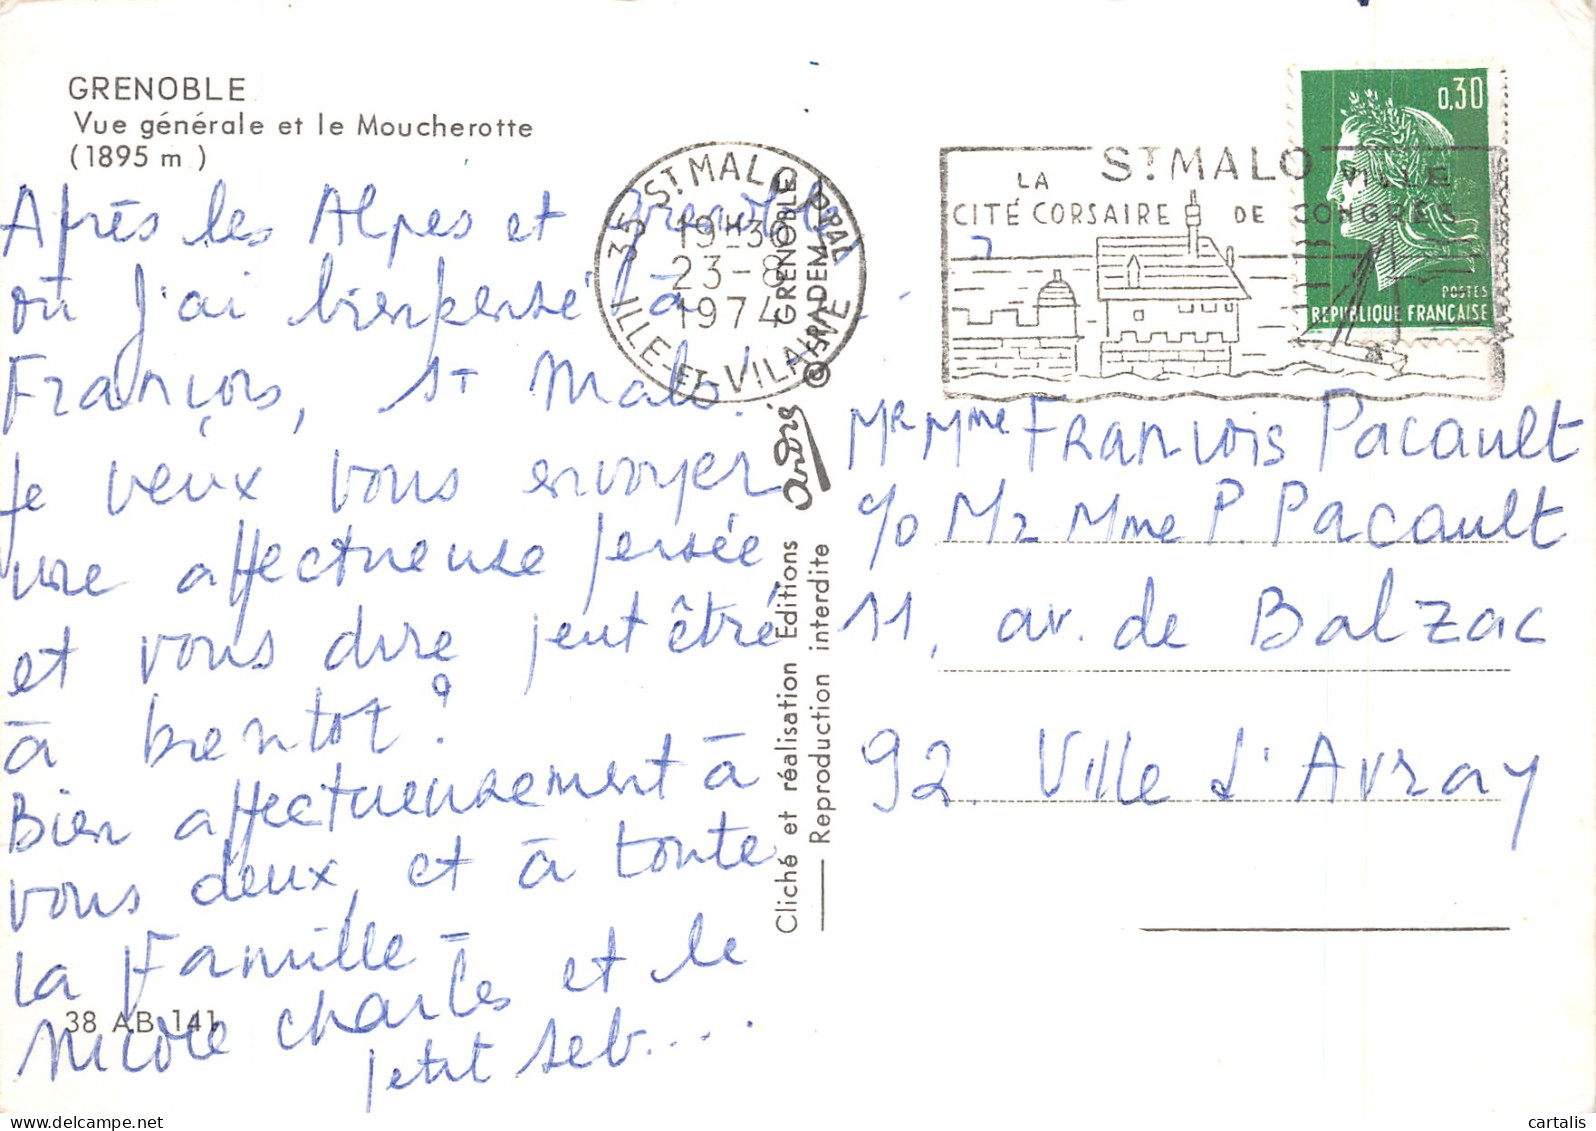 GRENOBLE
Vue générale et le Moucherotte
(1895 m )
Après les Alpes et Grenoble
où j'ai bien pensé à
François, St Malo.
Je veux vous envoyer
une affectueuse pensée
et vous dire peut être
à bientot ?
Bien affectueusement à
vous deux, et à toute
la Famille -
Nicole Charles et le
petit seb....
38 AB 141
35 ST MALO PPAL
19 H 30
23 - 8
1974
ILLE-ET-VILAINE
GRENOBLE
GRENOBLE
© SPADEM
André
Cliché et réalisation Editions
Reproduction interdite
ST MALO
LA
CITÉ CORSAIRE
VILLE
DE CONGRÈS
0,30
POSTES
REPUBLIQUE FRANÇAISE
Mr Mme François Pacault
c/o Mr Mme P. Pacault
11, av. de Balzac
92. Ville d'Avray
cartalis